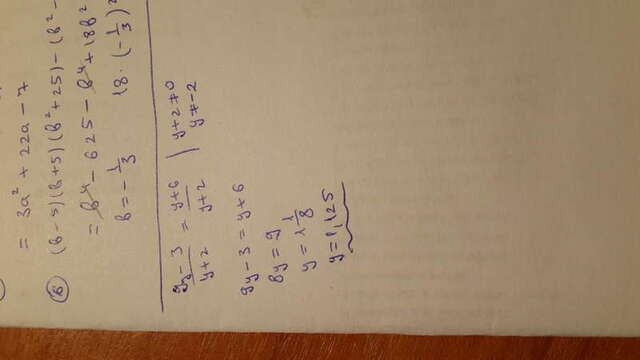 = 3a² + 22a - 7
(b-5)(b+5)(b²+25)-(b²-
= b⁴ - 625 - b⁴ + 18b²
b = -1/3 18·(-1/3)²
(9y-3)/(y+2) = (y+6)/(y+2) | y+2≠0
y≠-2
9y-3 = y+6
8y = 9
y = 1 1/8
y = 1,125